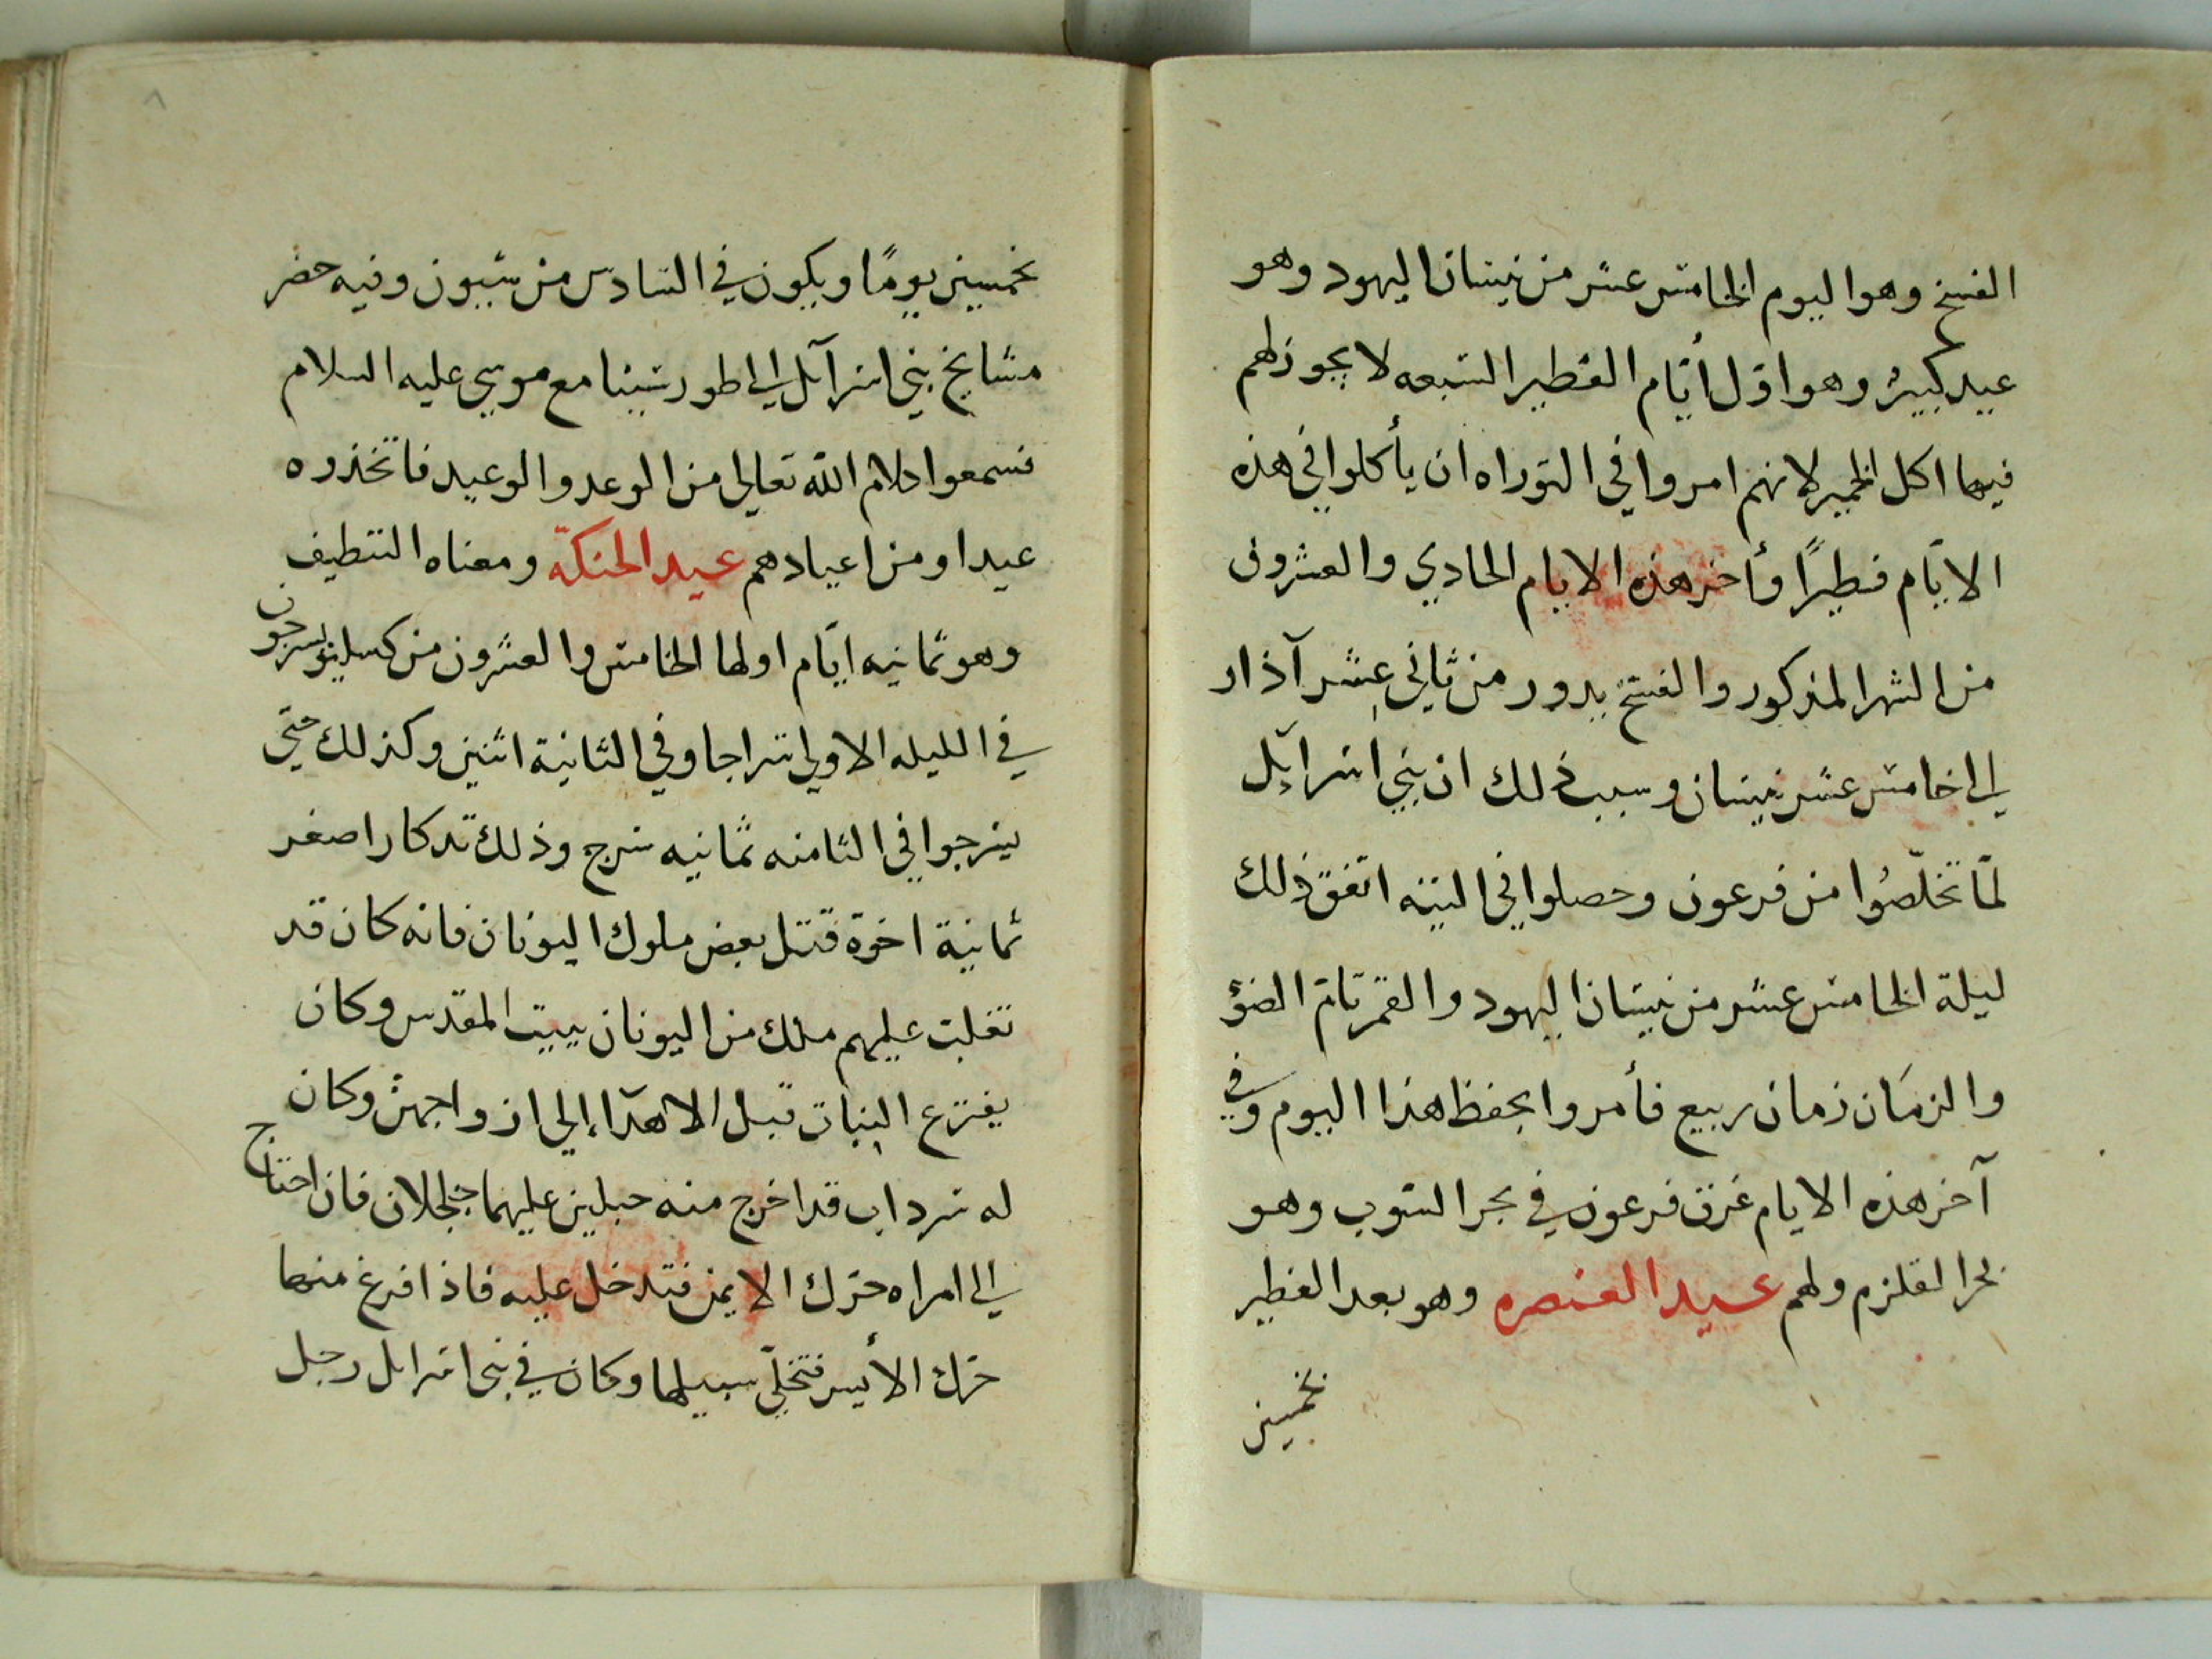 الفسح وهو اليوم الخامس عشر من نيسان اليهود وهو
عيد كبير وهو اوّل أيّام الفطير السبعه لا يجوز لهم
فيها اكل الخمير لانهم امروا في التوراه ان يأكلوا في هذه
الايّام فطيرًا وأخر هذه الايام الحادي والعشرون
من الشهر المذكور والفسح يدور من ثاني عشر آذار
الى خامس عشر نيسان وسبب ذلك ان بني اسرآئل
لمّا تخلّصُوا من فرعون وحصلوا في التيه اتفق ذلك
ليلة الخامس عشر من نيسان اليهود والقمر تامّ الضؤ
والزمَان زمان ربيع فأمروا بحفظ هذا اليوم وفي
آخر هذه الايام غرق فرعون في بحر السوب وهو
بحر القلزم ولهم عيد العنصره وهو بعد الفطير
بخمسين
٨
بخمسين يومًا ويكون في السادس من سيون وفيه حضر
مشايخ بني اسرآئل الى طور سينا مع موسي عليه السلام
فسمعوا كلام الله تعالى من الوعد والوعيد فاتخذوه
عيدا ومن اعيادهم عيد الحنكة ومعناه التنظيف
وهو ثمانيه ايّام اولها الخامس والعشرون من كسليو يسرجون
في الليله الاولي سراجا وفي الثانية اثنين وكذلك حتى
يسرجوا في الثامنه ثمانيه سرج وذلك تدكارا صغر
ثمانية اخوة قتل بعض ملوك اليونان فانه كان قد
تغلب عليهم ملك من اليونان ببيت المقدس وكان
يفترع البنات قبل الاهدآء إلى ازواجهنّ وكان
له سرداب قد اخرج منه حبلين عليهما جلجلان فان احتاج
الى امراه حرّك الايمن فتدخل عليه فاذا افرغ منها
حرّك الأيسر فتخلّي سبيلها وكان في بنى اسرايل رجل